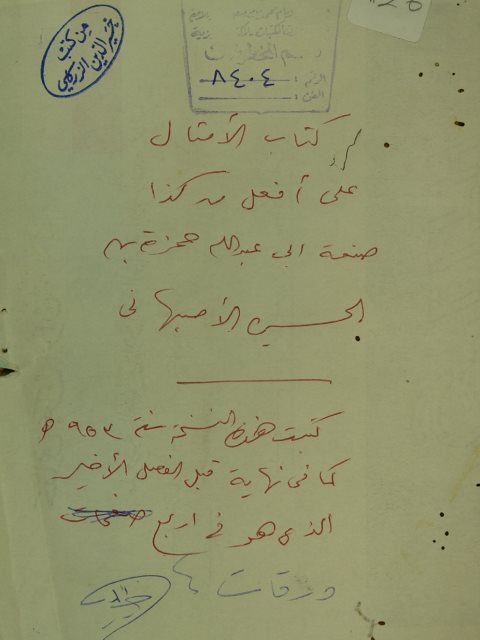 من كتب
خير الدين الزركلي
قسم المخطوطات
الرقم : ٨٤٠٤
الفن :
كتاب الأمثال
على أفعل من كذا
صنعة ابي عبدالله حمزة بن
الحسين الأصبهاني
كتبت هذه النسخة سنة ٩٥٣ ه
كما في نهاية قبل الفصل الأخير
الذي هو في اربع صفحات
ورقات